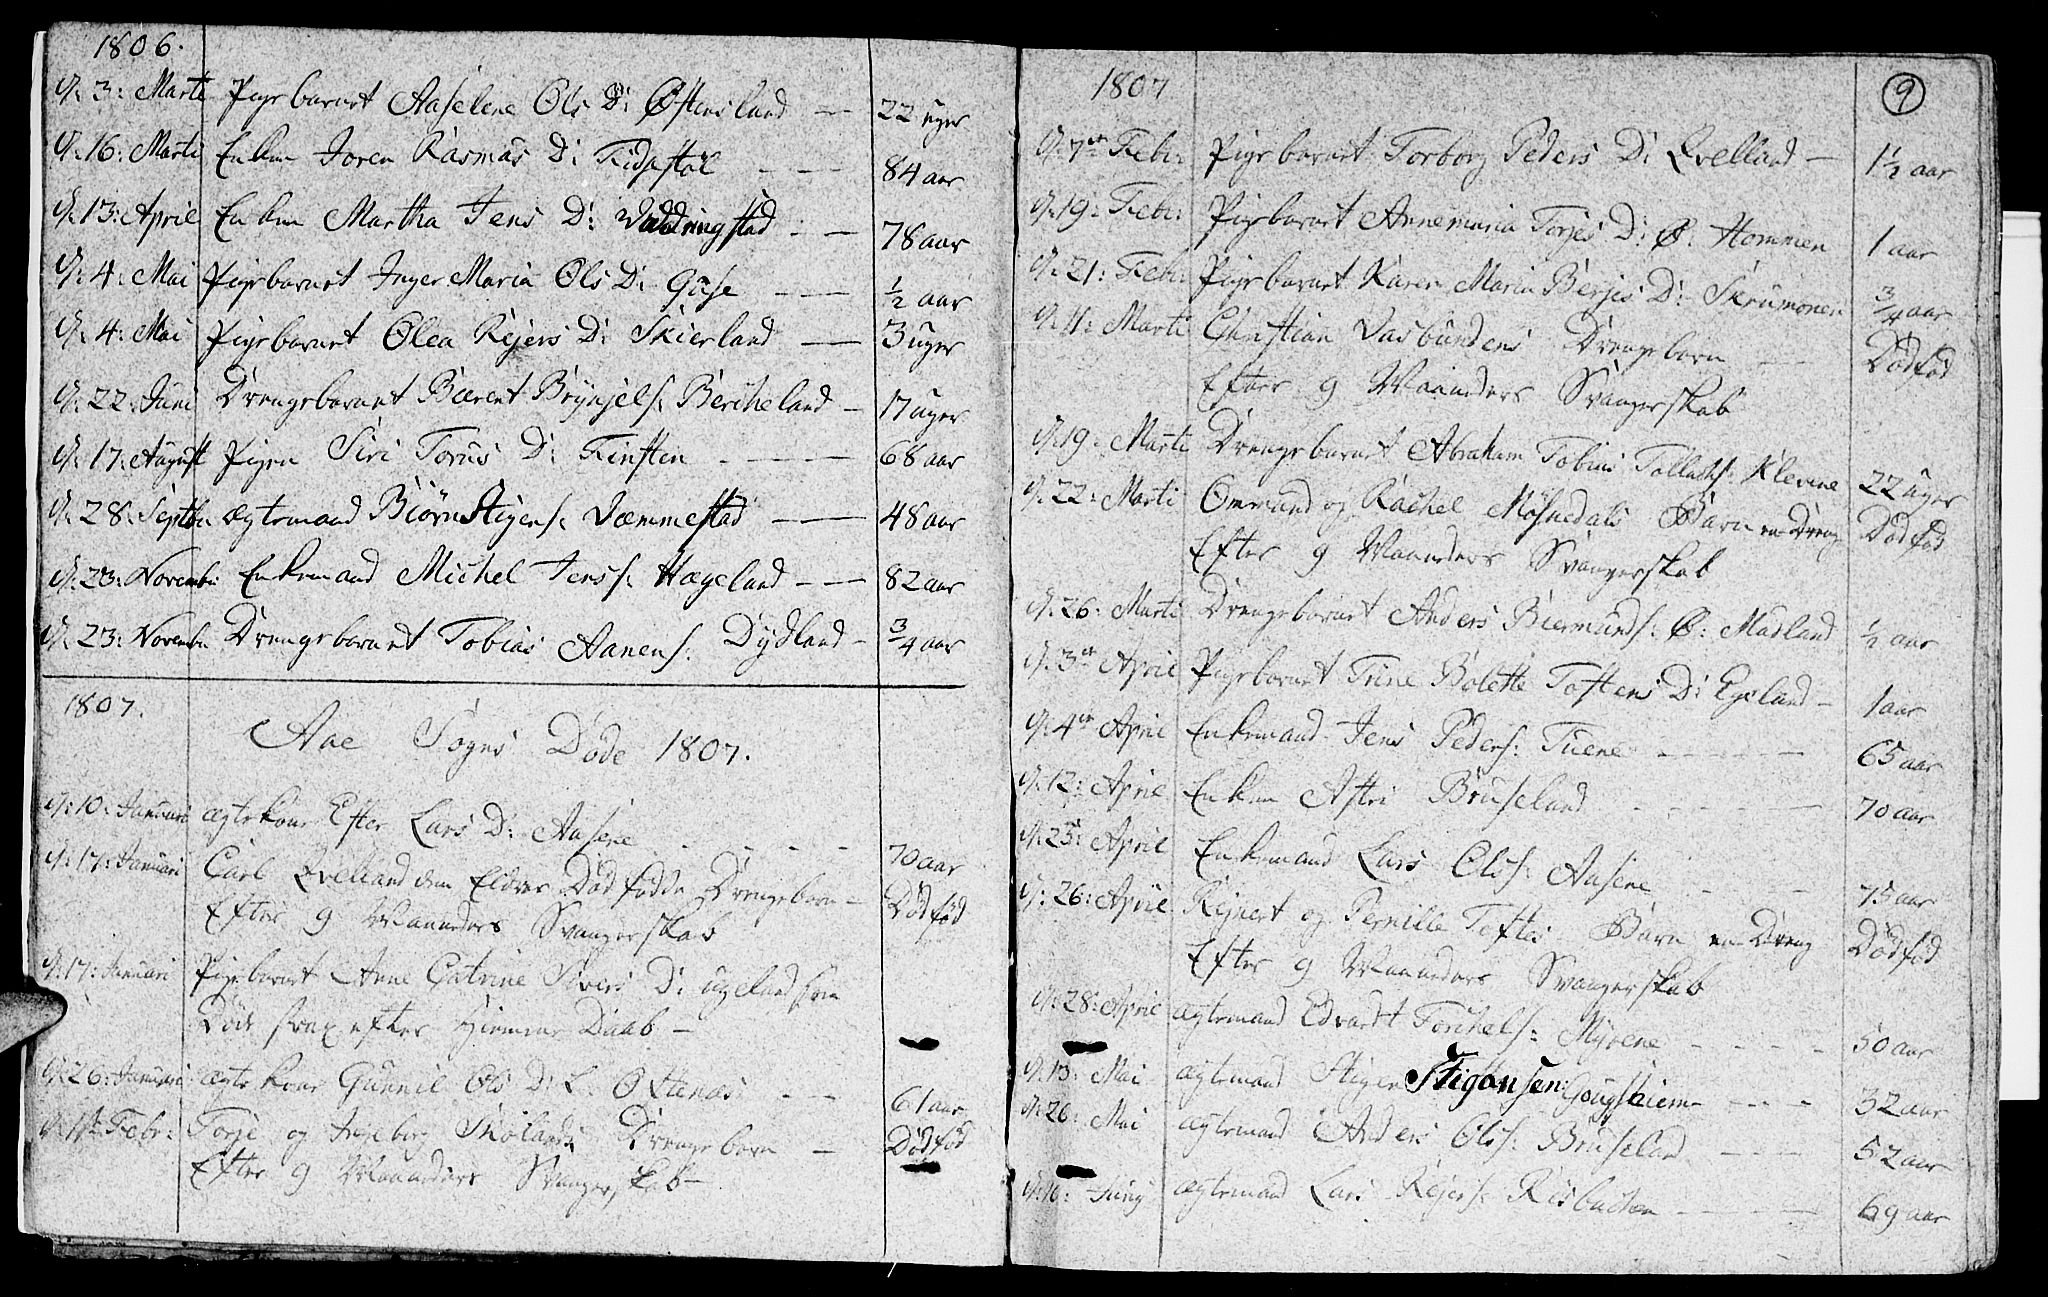 1806.
d: 3: Marti Pigebarnet Aaselene Ols D: Østensland 22 uger
d: 16: Marti Enken Joren Rasmus D: Fidsestøl 84 aar
d: 13: April Enken Martha Jens D: 78 aar
d: 4: Mai Pigebarnet Inger Maria Ols D: 1/2 aar
d: 4: Mai Pigebarnet Olea Rejers D: Skierland 3 uger
d: 22: Juni Drengebarnet Bærent Brynjels: Bercheland 17 uger
d: 17: August Pigen Siri Torus D: 68 aar
d: 28: Septbr ægtemand Biørn Stigens: Væmmestad 48 aar
d: 23: Novembr Enkemand Michel Jens: Hægeland 82 aar
d: 23: Novembr Drengebarnet Tobias Aanens: Dydland 3/4 aar
1807.
Aae Sogns Døde 1807.
d: 10: Januari ægtekone Ester Lars D: Aasene 70 aar
d: 17: Januari Carl Qvelland den Eldres Dødfødde Drengebarn Dødfød
Efter 9 Maaneders Svangerskab
d: 17: Januari Pigebarnet Anne Catrine Sivers D: Ugeland som
Døde strax efter Hiemme Daab
d: 26: Januari ægtekone Gunnil Ols D: L: Ottenes 61 aar
d: 11te Febr: Torje og Ingeborg Skolands Drengebarn Dødfød
Efter 9 Maaneders Svangerskab
1807
9
d: 7de Febr: Pigebarnet Torborg Peders D: Qvelland 1 1/2 aar
d: 19: Febr: Pigebarnet Annemaria Torjes D: Ø: Hommen 1 aar
d: 21: Febr: Pigebarnet Karen Maria Berjes D: Skrumoen 3/4 aar
d: 11: Marti Christian Vasbundens Drengebarn Dødfød
Efter 9 Maaneders Svangerskab
d: 19: Marti Drengebarnet Abraham Tobias Tallaks: Klevene 22 uger
d: 22: Marti Ommund og Rachel Møsnedals Barn en Dreng Dødfød
Efter 9 Maaneders Svangerskab
d: 26: Marti Drengebarnet Anders Biermunds: Ø: Madland 1/2 aar
d: 3de April Pigebarnet Trine Bolette Tostens D: Egeland 1 aar
d: 4de April Enkemand Jens Peders: Tuene 65 aar
d: 12: April Enken Astri Bruseland 70 aar
d: 25: April Enkemand Lars Ols: Aasene 75 aar
d: 26: April Rejnert og Pernille Toftes Barn en Dreng Dødfød
Efter 9 Maaneders Svangerskab
d: 28: April ægtemand Edvardt Torchels: Myrene 50 aar
d: 13: Mai ægtemand Stigen Stigansen 32 aar
d: 26: Mai ægtemand Anders Ols: Bruseland 52 aar
d: 10: Juny ægtemand Lars Rejers: Risbachen 69 aar